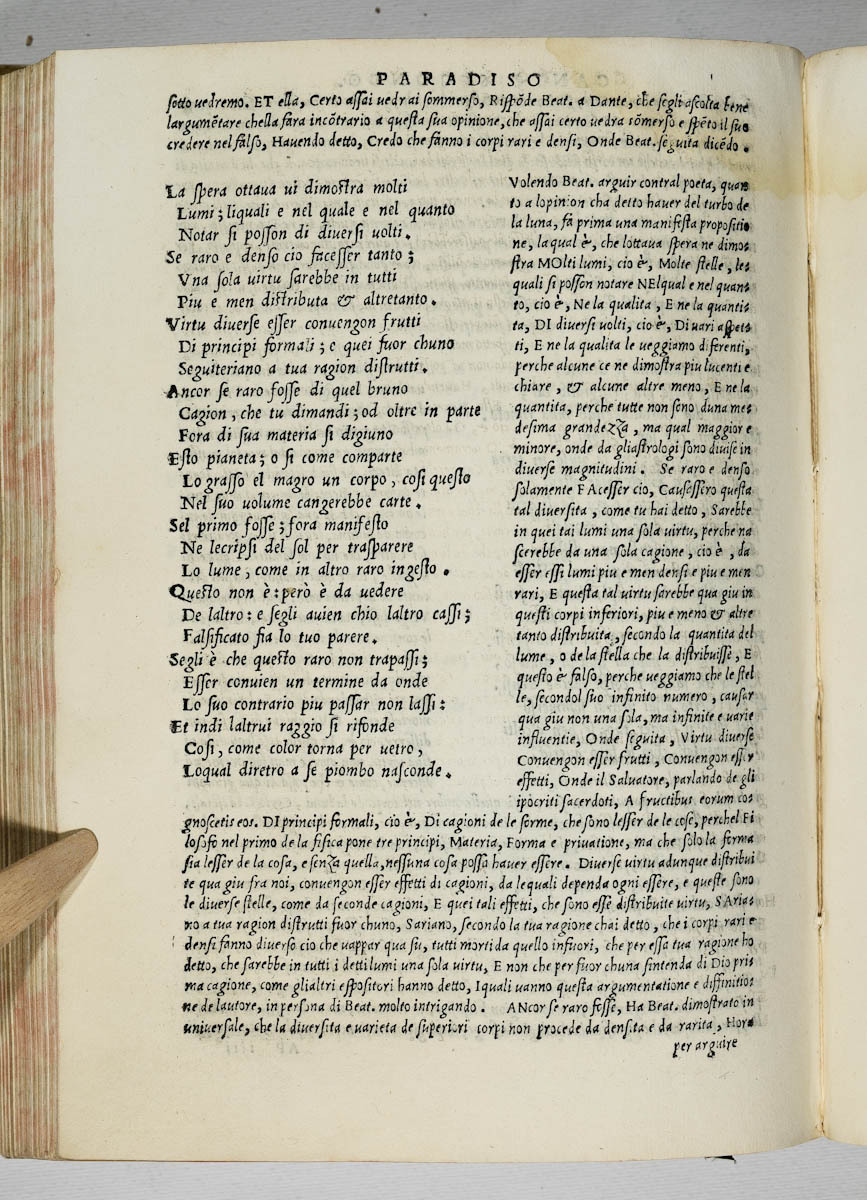 PARADISO
sotto uedremo. ET ella, Certo assai uedrai sommerso, Rispōde Beat. a Dante, che segli ascolta bene
largumētare chella fara incōtrario a questa sua opinione, che assai certo uedra sōmerso e spēto il suo
credere nel falso, Hauendo detto, Credo che fanno i corpi rari e densi, Onde Beat. seguita dicēdo.
La spera ottaua ui dimostra molti
Lumi; liquali e nel quale e nel quanto
Notar si posson di diuersi uolti.
Se raro e denso cio facesser tanto;
Vna sola uirtu sarebbe in tutti
Piu e men distributa & altretanto.
Virtu diuerse esser conuengon frutti
Di principi formali; e quei fuor chuno
Seguiteriano a tua ragion distrutti.
Ancor se raro fosse di quel bruno
Cagion, che tu dimandi; od oltre in parte
Fora di sua materia si digiuno
Esto pianeta; o si come comparte
Lo grasso el magro un corpo, cosi questo
Nel suo uolume cangerebbe carte.
Sel primo fosse; fora manifesto
Ne lecripsi del sol per trasparere
Lo lume, come in altro raro ingesto.
Questo non è: però è da uedere
De laltro: e segli auien chio laltro cassi;
Falsificato fia lo tuo parere.
Segli è che questo raro non trapassi;
Esser conuien un termine da onde
Lo suo contrario piu passar non lassi:
Et indi laltrui raggio si rifonde
Cosi, come color torna per uetro,
Loqual diretro a se piombo nasconde.
Volendo Beat. arguir contral poeta, quan
to a lopinion cha detto hauer del turbo de
la luna, fa prima una manifesta propositio
ne, la qual è, che lottaua spera ne dimos
stra MOlti lumi, cio è, Molte stelle, les
quali si posson notare NElqual e nel quans
to, cio è, Ne la qualita, E ne la quantis
ta, DI diuersi uolti, cio è, Di uari aspets
ti, E ne la qualita le ueggiamo diferenti,
perche alcune ce ne dimostra piu lucenti e
chiare, & alcune altre meno, E ne la
quantita, perche tutte non sono duna mes
desima grandezza, ma qual maggior e
minore, onde da gliastrologi sono diuise in
diuerse magnitudini. Se raro e denso
solamente FAcesser cio, Causessero questa
tal diuersita, come tu hai detto, Sarebbe
in quei tai lumi una sola uirtu, perche na
scerebbe da una sola cagione, cio è, da
esser essi lumi piu e men densi e piu e men
rari, E questa tal uirtu sarebbe qua giu in
questi corpi inferiori, piu e meno & altre
tanto distribuita, secondo la quantita del
lume, o de la stella che la distribuisse, E
questo è falso, perche ueggiamo che le stel
le, secondol suo infinito numero, causar
qua giu non una sola, ma infinite e uarie
influentie, Onde seguita, Virtu diuerse
Conuengon esser frutti, Conuengon esser
effetti, Onde il Saluatore, parlando de gli
ipocriti sacerdoti, A fructibus eorum cos
gnoscetis eos. DI principi formali, cio è, Di cagioni de le forme, che sono lesser de le cose, perchel Fi
losofo nel primo de la fisica pone tre principi, Materia, Forma e priuatione, ma che solo la forma
sia lesser de la cosa, e senza quella, nessuna cosa possa hauer essere. Diuerse uirtu adunque distribui
te qua giu fra noi, conuengon esser effetti di cagioni, da lequali dependa ogni essere, e queste sono
le diuerse stelle, come da seconde cagioni, E quei tali effetti, che sono esse distribuite uirtu, SArias
no a tua ragion distrutti fuor chuno, Sariano, secondo la tua ragione chai detto, che i corpi rari e
densi fanno diuerso cio che uappar qua su, tutti morti da quello infuori, che per essa tua ragione ho
detto, che sarebbe in tutti i detti lumi una sola uirtu, E non che per fuor chuna sintenda di Dio pris
ma cagione, come glialtri espositori hanno detto, I quali uanno questa argumentatione e diffinitios
ne de lautore, in persona di Beat. molto intrigando. ANcor se raro fosse, Ha Beat. dimostrato in
uniuersale, che la diuersita e uarieta de superiori corpi non procede da densita e da rarita, Hora
per arguire